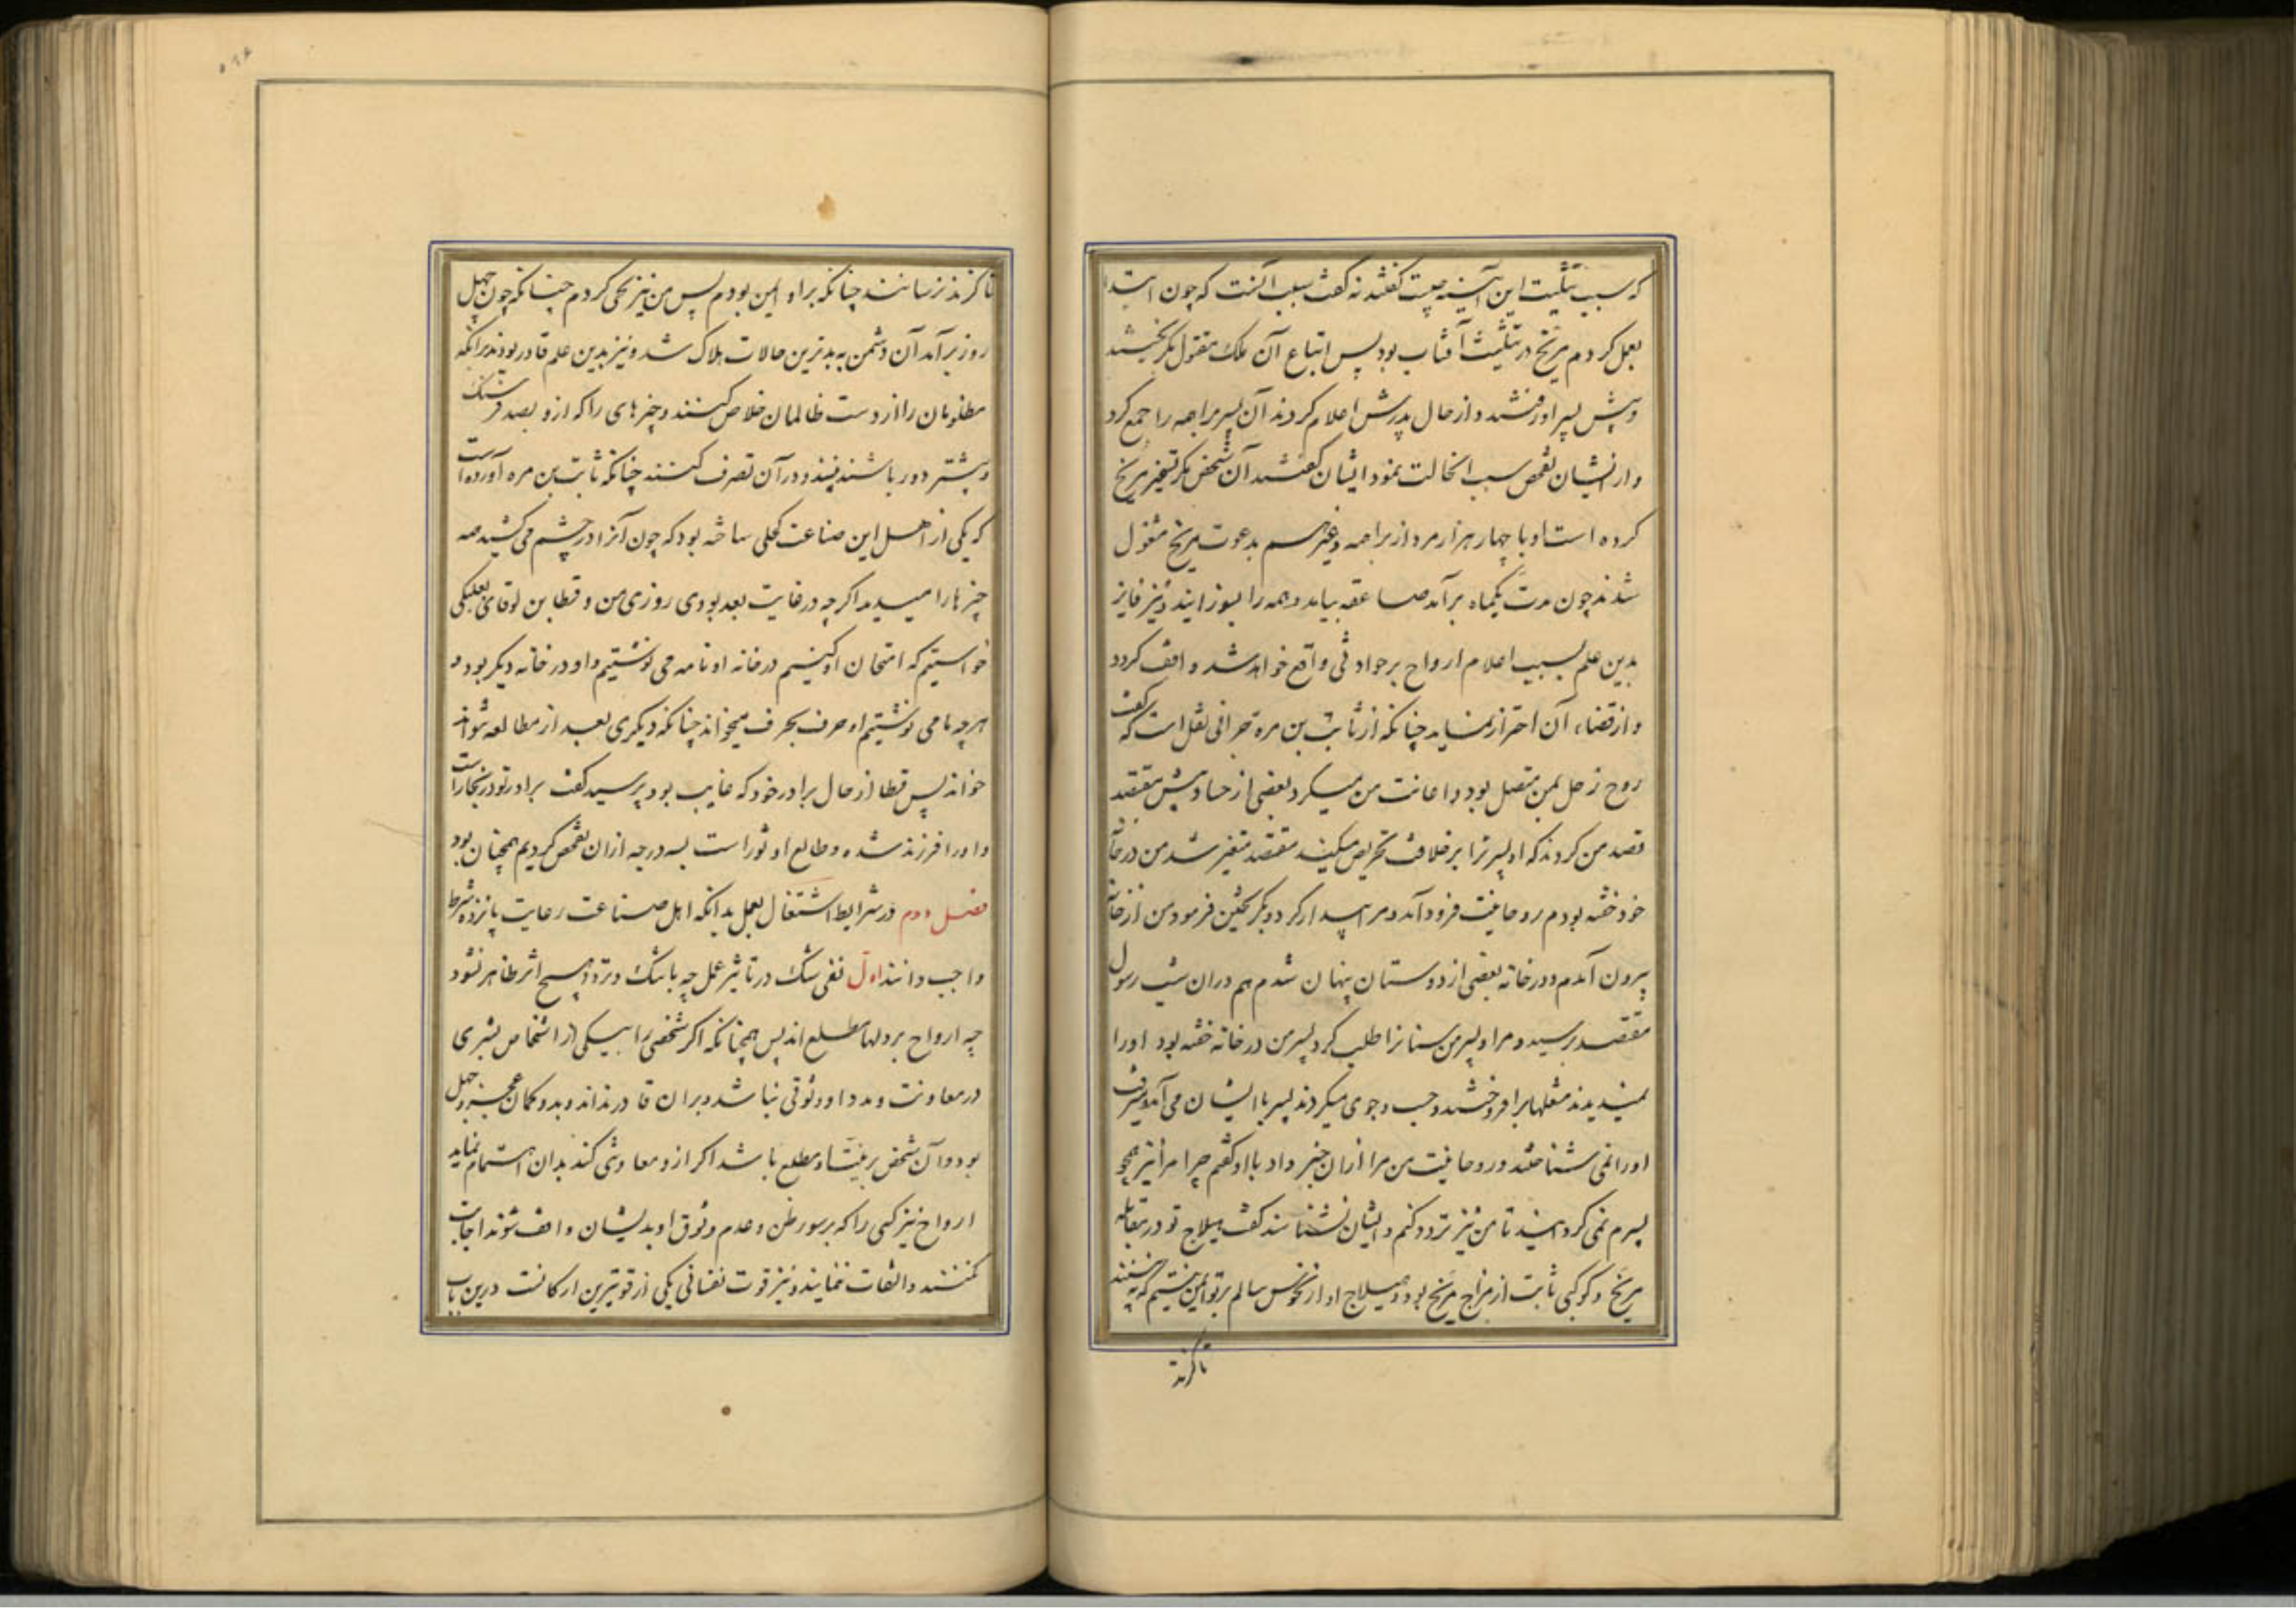 که سبب تثلیث این آینه چیست گفتند نه گفت سبب آنست که چون ابتدا
بعمل کردم مریخ در تثلیث آفتاب بود پس اتباع آن ملک مقتول بگریختند
و پیش پسر او رفتند و از حال پدرش اعلام کردند آن پسر براهمه را جمع کرد
و از ایشان تفحص سبب آنحالت نمود ایشان گفتند آن شخص مکر تسخیر مریخ
کرده است او با چهار هزار مرد از براهمه و غیرهم بدعوت مریخ مشغول
شدند چون مدت یکماه برآمد صاعقه بیامد و همه را بسوزانید و نیز فایز
بدین علم بسبب اعلام ارواح بر حوادثی واقع خواهد شد واقف کردد
و از قضاء آن احتراز نماید چنانکه از ثابت بن مره حرانی نقل است که گفت
روح زحل بمن متصل بود و اعانت من میکرد بعضی از حساد پیش معتضد
قصد من کردند که او پسر ترا بر خلافت تحریص میکند معتضد متغیر شد من در خانه
خود خفته بودم روحانیت فرود آمد و مرا بیدار کرد و بکریختن فرمود من از خانه
بیرون آمدم و در خانه بعضی از دوستان پنهان شدم هم در آن شب رسول
معتضد برسید و مرا و پسر من سنانرا طلب کرد پسر من در خانه خفته بود او را
نمیدیدند مشعلها برافروختند و جست و جوی میکردند پسر با ایشان می آمد و میرفت
او را نمی شناختند و روحانیت من مرا از آن خبر داد با او گفتم چرا مرا نیز همچو
پسرم نمی کردانید تا من نیز تردد کنم و ایشان نشناسند گفت هیلاج تو در مقابله
مریخ و کوکبی ثابت از مزاج مریخ بود و هیلاج او از نحوس سالم بر تو ایمن نیستیم که
تا کزند
تا کزند نرسانند چنانکه بر او ایمن بودم پس من نیز نحی کردم چنانکه چون چهل
روز برآمد آن دشمن به بدترین حالات هلاک شد و نیز بدین علم قادر بودند برانکه
مظلومان را از دست ظالمان خلاص کنند و چیزهای را که ازو بصد فرسنک
و بیشتر دور باشند ببینند و در آن تصرف کنند چنانکه ثابت بن مره آورده است
که یکی از اهل این صناعت کحلی ساخته بود که چون آنرا در چشم می کشید همه
چیزها را میدید اکر چه در غایت بعد بودی روزی من و قسطا بن لوقای بعلبکی
خواستیم که امتحان او کنیم در خانه او نامه می نوشتیم و او در خانه دیکر بود و
هرچه ما می نوشتیم او حرف بحرف میخواند چنانکه دیکری بعد از مطالعه تواند
خواند پس قسطا از حال برادر خود که غایب بود پرسید گفت برادر تو در بخارا است
و او را فرزند شده و طالع او ثور است بسه درجه از آن تفحص کردیم همچنان بود
فصل دوم در شرایط اشتغال بعمل بدانکه اهل صناعت رعایت پانزده شرط
واجب دانند اول نفی شک در تاثیر عمل چه با شک و تردد هیچ اثر ظاهر نشود
چه ارواح بر دلها مطلع اند پس همچنانکه اکر شخصی را بیکی از اشخاص بشری
در معاونت و مدد او وثوقی نباشد و بر آن قادر نداند و بدو کمان عجز و جهل
بود و آن شخص بر نیت او مطلع باشد اکر ازو معاونتی کند بدان اهتمام ننماید
ارواح نیز کسی را که بر سوء ظن و عدم وثوق او بدیشان واقف شوند اجابت
نکنند و التفات ننمایند و نیز قوت نفسانی یکی از قویترین ارکانست درین باب